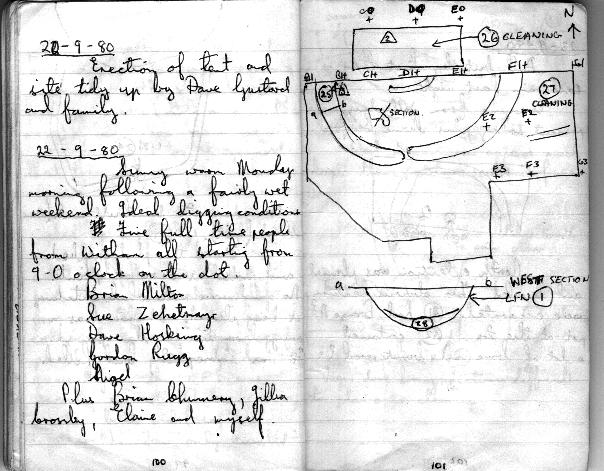 20-9-80
Erection of tent and
site tidy up by Dave Gustard
and family.
22-9-80
Sunny warm Monday
morning following a fairly wet
weekend. Ideal digging conditions
Five full time people
from Witham all starting from
9-0 o clock on the dot.
Brian Milton
Sue Zehetmayr
Dave Hosking
Gordon Rugg
Nigel
Plus Brian Chunnery, Gillia
Crossby, Elaine and myself.
100
C0 D0 E0
N
2
26 CLEANING
B1 C1 D1 E1 F1 G1
25
a b
SECTION
27
CLEANING
E2 E2
E3 F3 G3
a b WEST SECTION
LFN 1
28
101